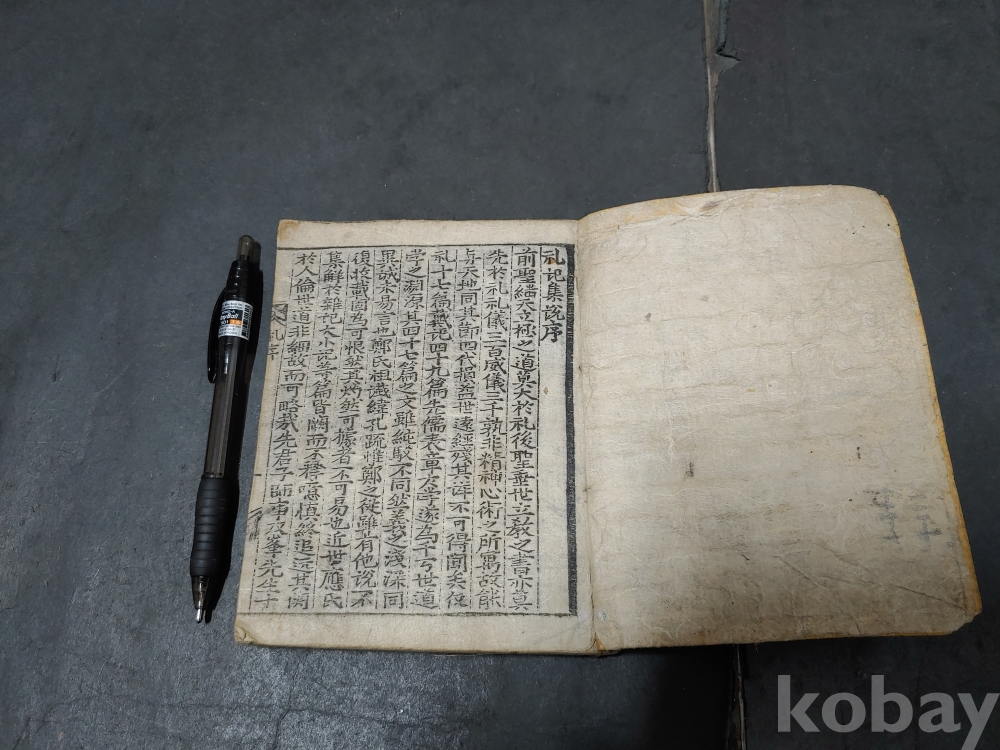 礼記集說序
前聖継天立極之道莫大於礼後聖垂世立敎之書亦莫
先於礼礼儀三百威儀三千孰非精神心術之所寓故能
与天地同其節四代損益世遠經殘其詳不可得聞矣儀
礼十七篇戴記四十九篇先儒表章庸学遂為千万世道
学之淵源其四十七篇之文雖純駁不同然義之淺深同
異誠未易言也鄭氏祖讖緯孔疏惟鄭之從雖有他說不
復收載固為可恨然其灼然可據者不可易也近世應氏
集解於雜記大小記等篇皆闕而不釋噫慎終追远其関
於人倫世道非細故而可略哉先君子師事双峯先生十
礼序
kobay